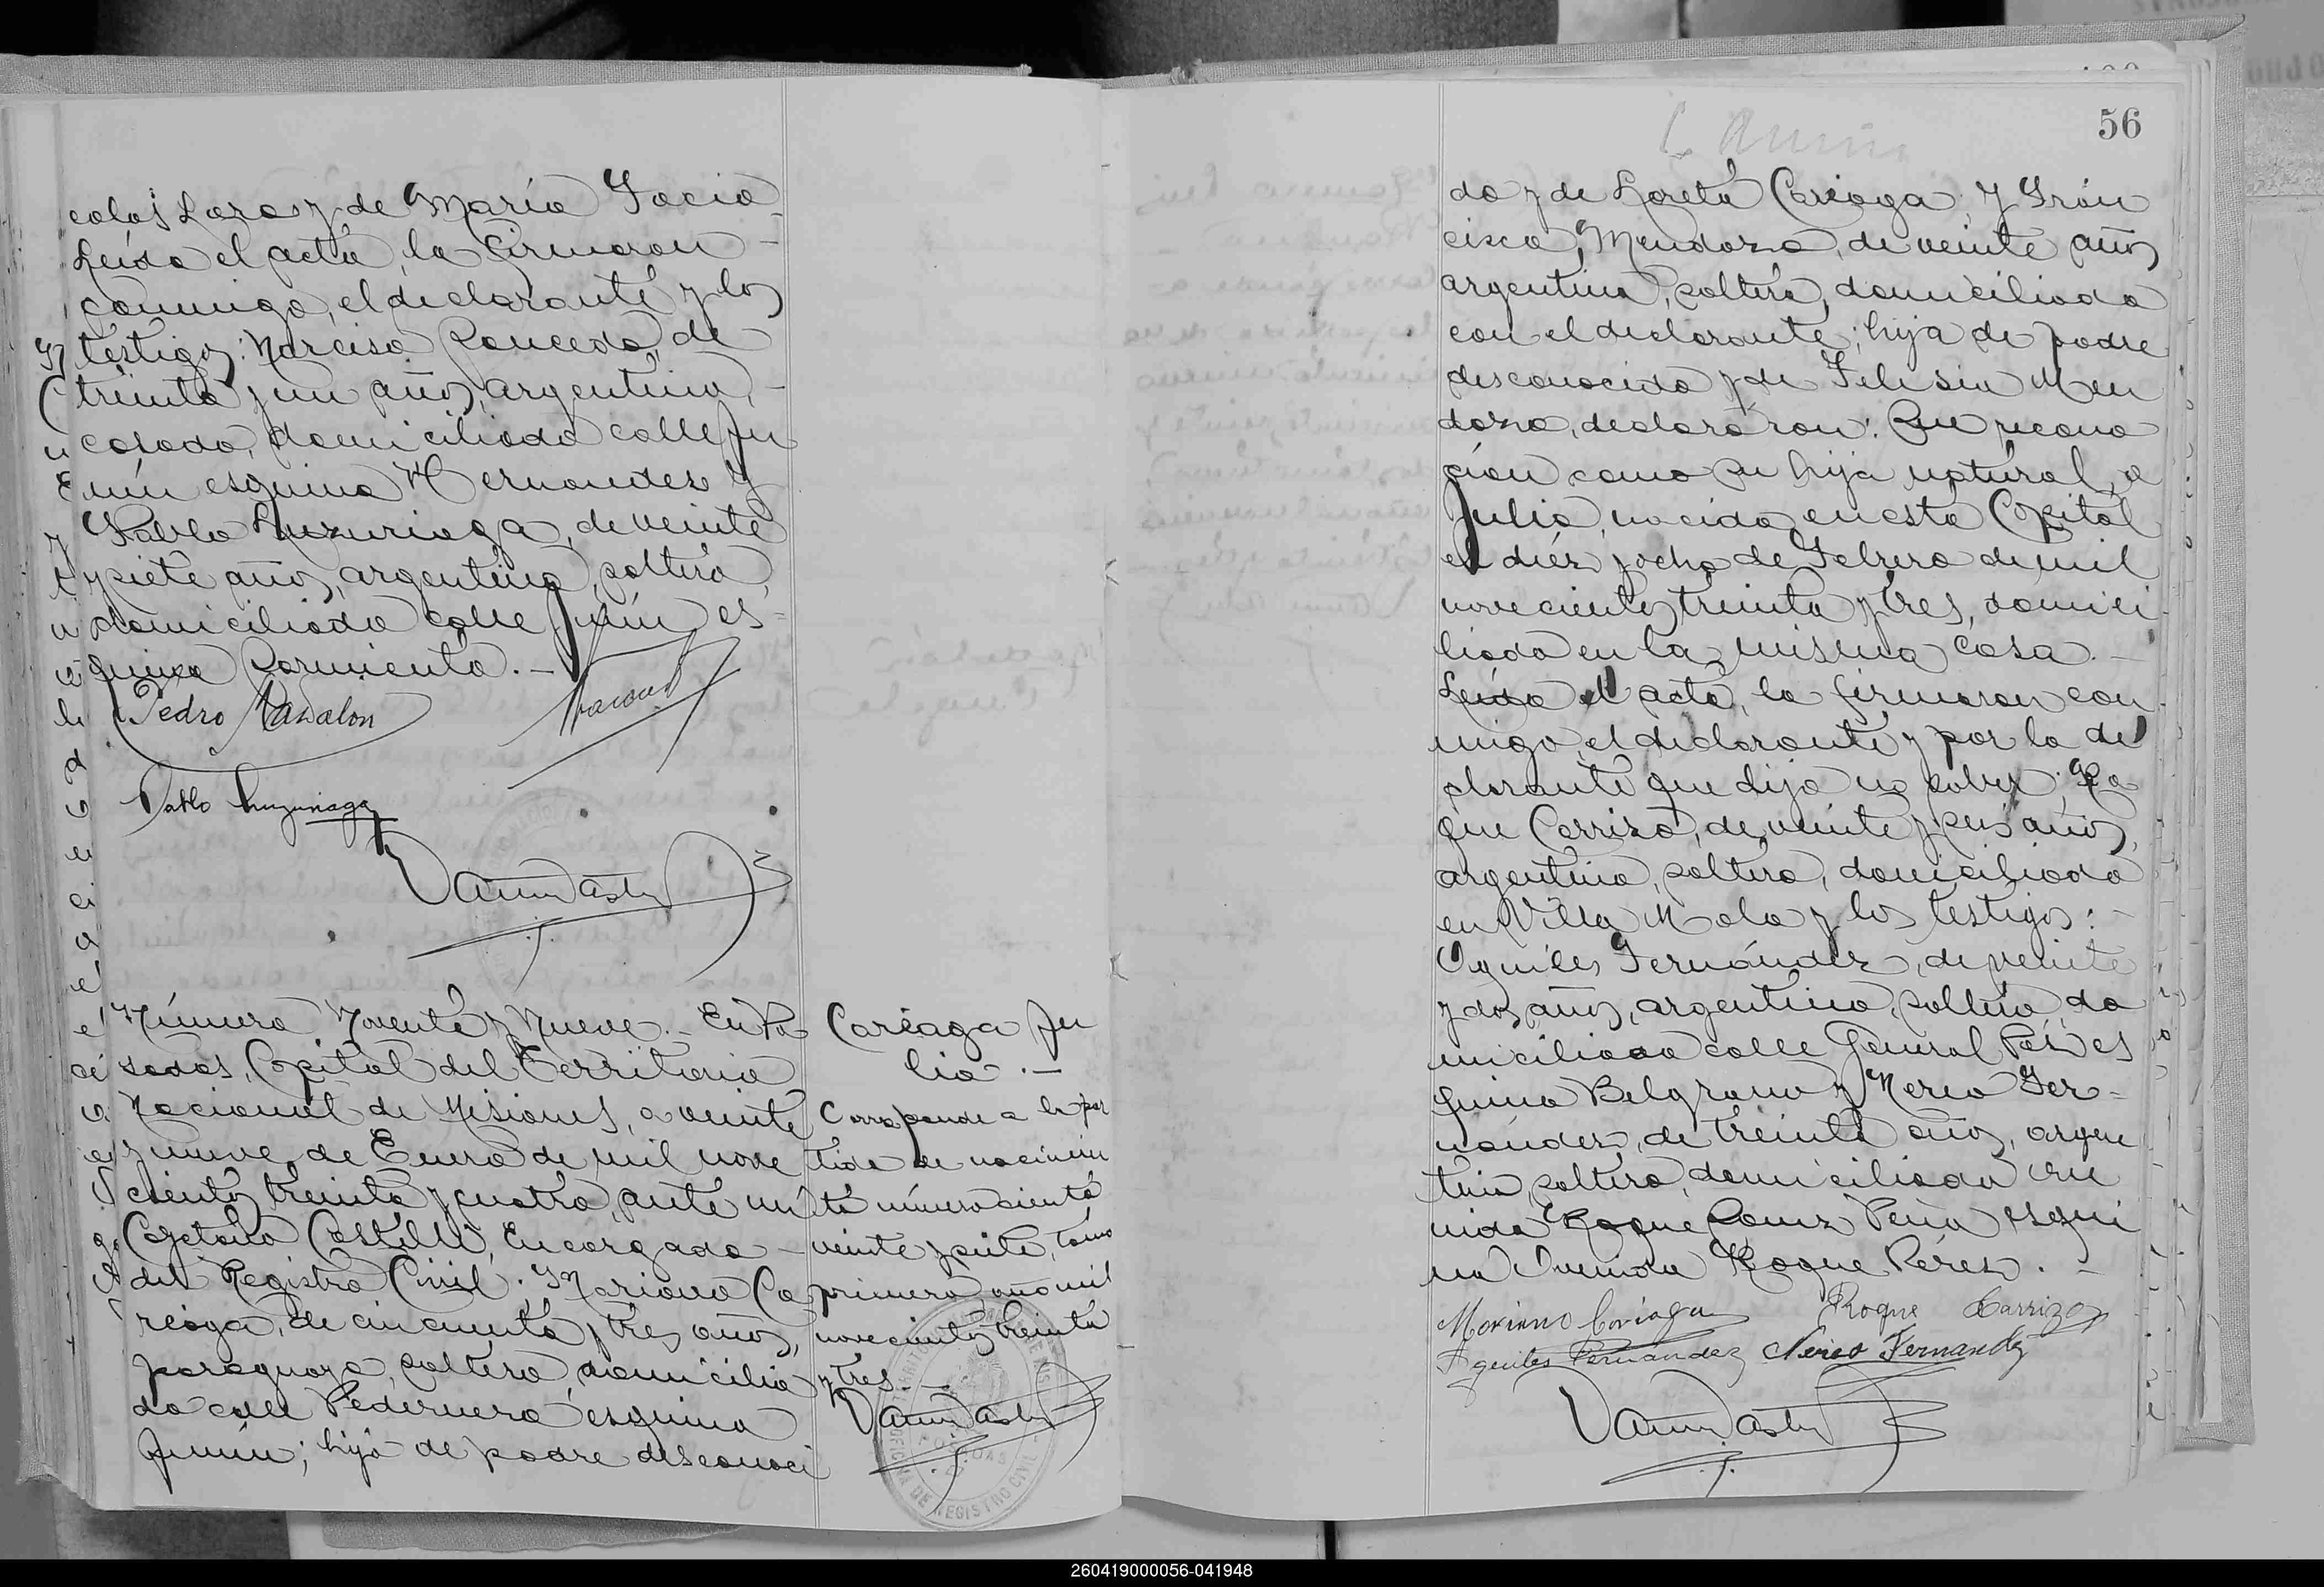 colas Lara y de María Tacia
Leída el acta, la firmaron
conmigo, el declarante y los
testigos: Narciso Saucedo, de
treinta y un años, argentino,
casado, domiciliado calle Ju
nín esquina Hernandez y
Pablo Luzuriaga, de veinte
y siete años, argentino, soltero,
domiciliado calle Junín es-
quina Sarmiento.-
Pedro
Pablo Luzuriaga
Número Noventa y Nueve.- En Po
sadas, Capital del Territorio
Nacional de Misiones, a veinte
y nueve de Enero de mil nove
cientos treinta y cuatro, ante mí
Cayetano Castelli, Encargado -
del Registro Civil: Mariano Ca
reaga, de cincuenta y tres años,
paraguayo, soltero, domicilia
do calle Pedernera esquina
Junín; hijo de padre desconoci
Careaga Ju
lia.-
Corresponde a la par
tida de nacimien
to número ciento
veinte y siete, tomo
primero, año mil
novecientos treinta
y tres.-
OFICINA DE REGISTRO CIVIL
56
do y de Loreta Careaga; y Fran
cisca Mendoza, de veinte años
argentina, soltera, domiciliada
con el declarante; hija de padre
desconocido y de Felisia Men
doza, declararon: Que recono
cían como su hija natural, a
Julia, nacida en esta Capital
el diez y ocho de Febrero de mil
novecientos treinta y tres, domici
liada en la misma casa.-
Leída el acta, la firmaron con
migo, el declarante y por la de
clarante que dijo no saber: Ro
que Carrizo, de veinte y seis años,
argentino, soltero, domiciliado
en Villa Mola y los testigos:-
Aquiles Fernández, de veinte
y dos años, argentino, soltero, do
miciliado calle General Paz es
quina Belgrano y Nereo Fer-
nández, de treinta años, argen
tino, soltero, domiciliado ave
nida Roque Saenz Peña esqui
na Avenida Roque Pérez.-
Mariano Cariaga Roque Carrizo
Aquiles Fernandez Nereo Fernandez
260419000056-041948